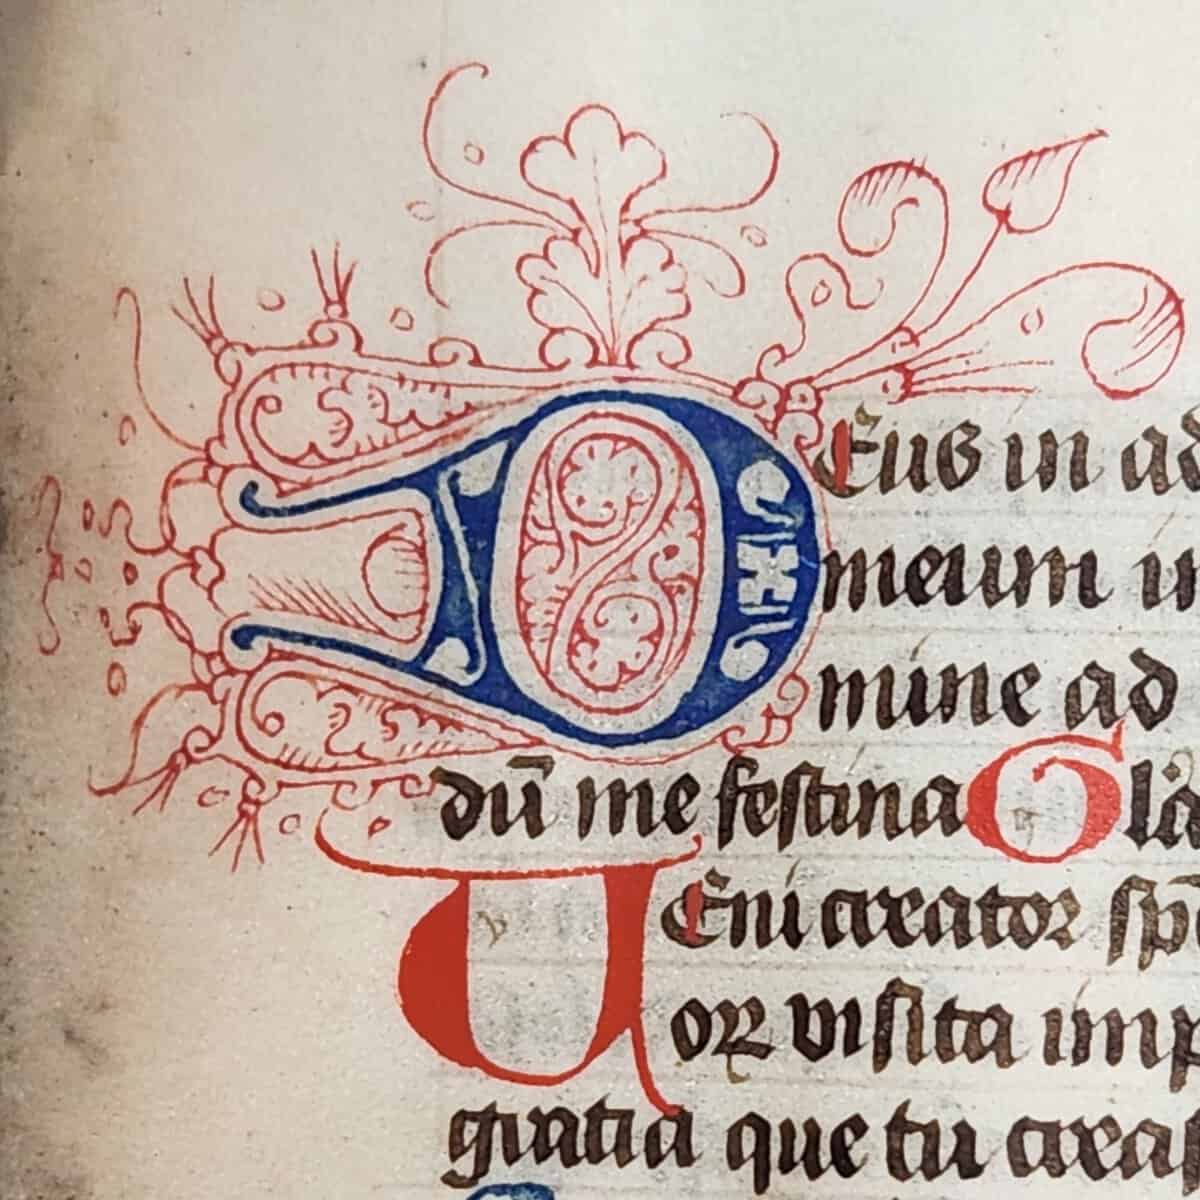 DEus in ad
meum in
mine ad
dū me festina Gla
VEni creator sp̄
or visita imp
gratia que tu creas